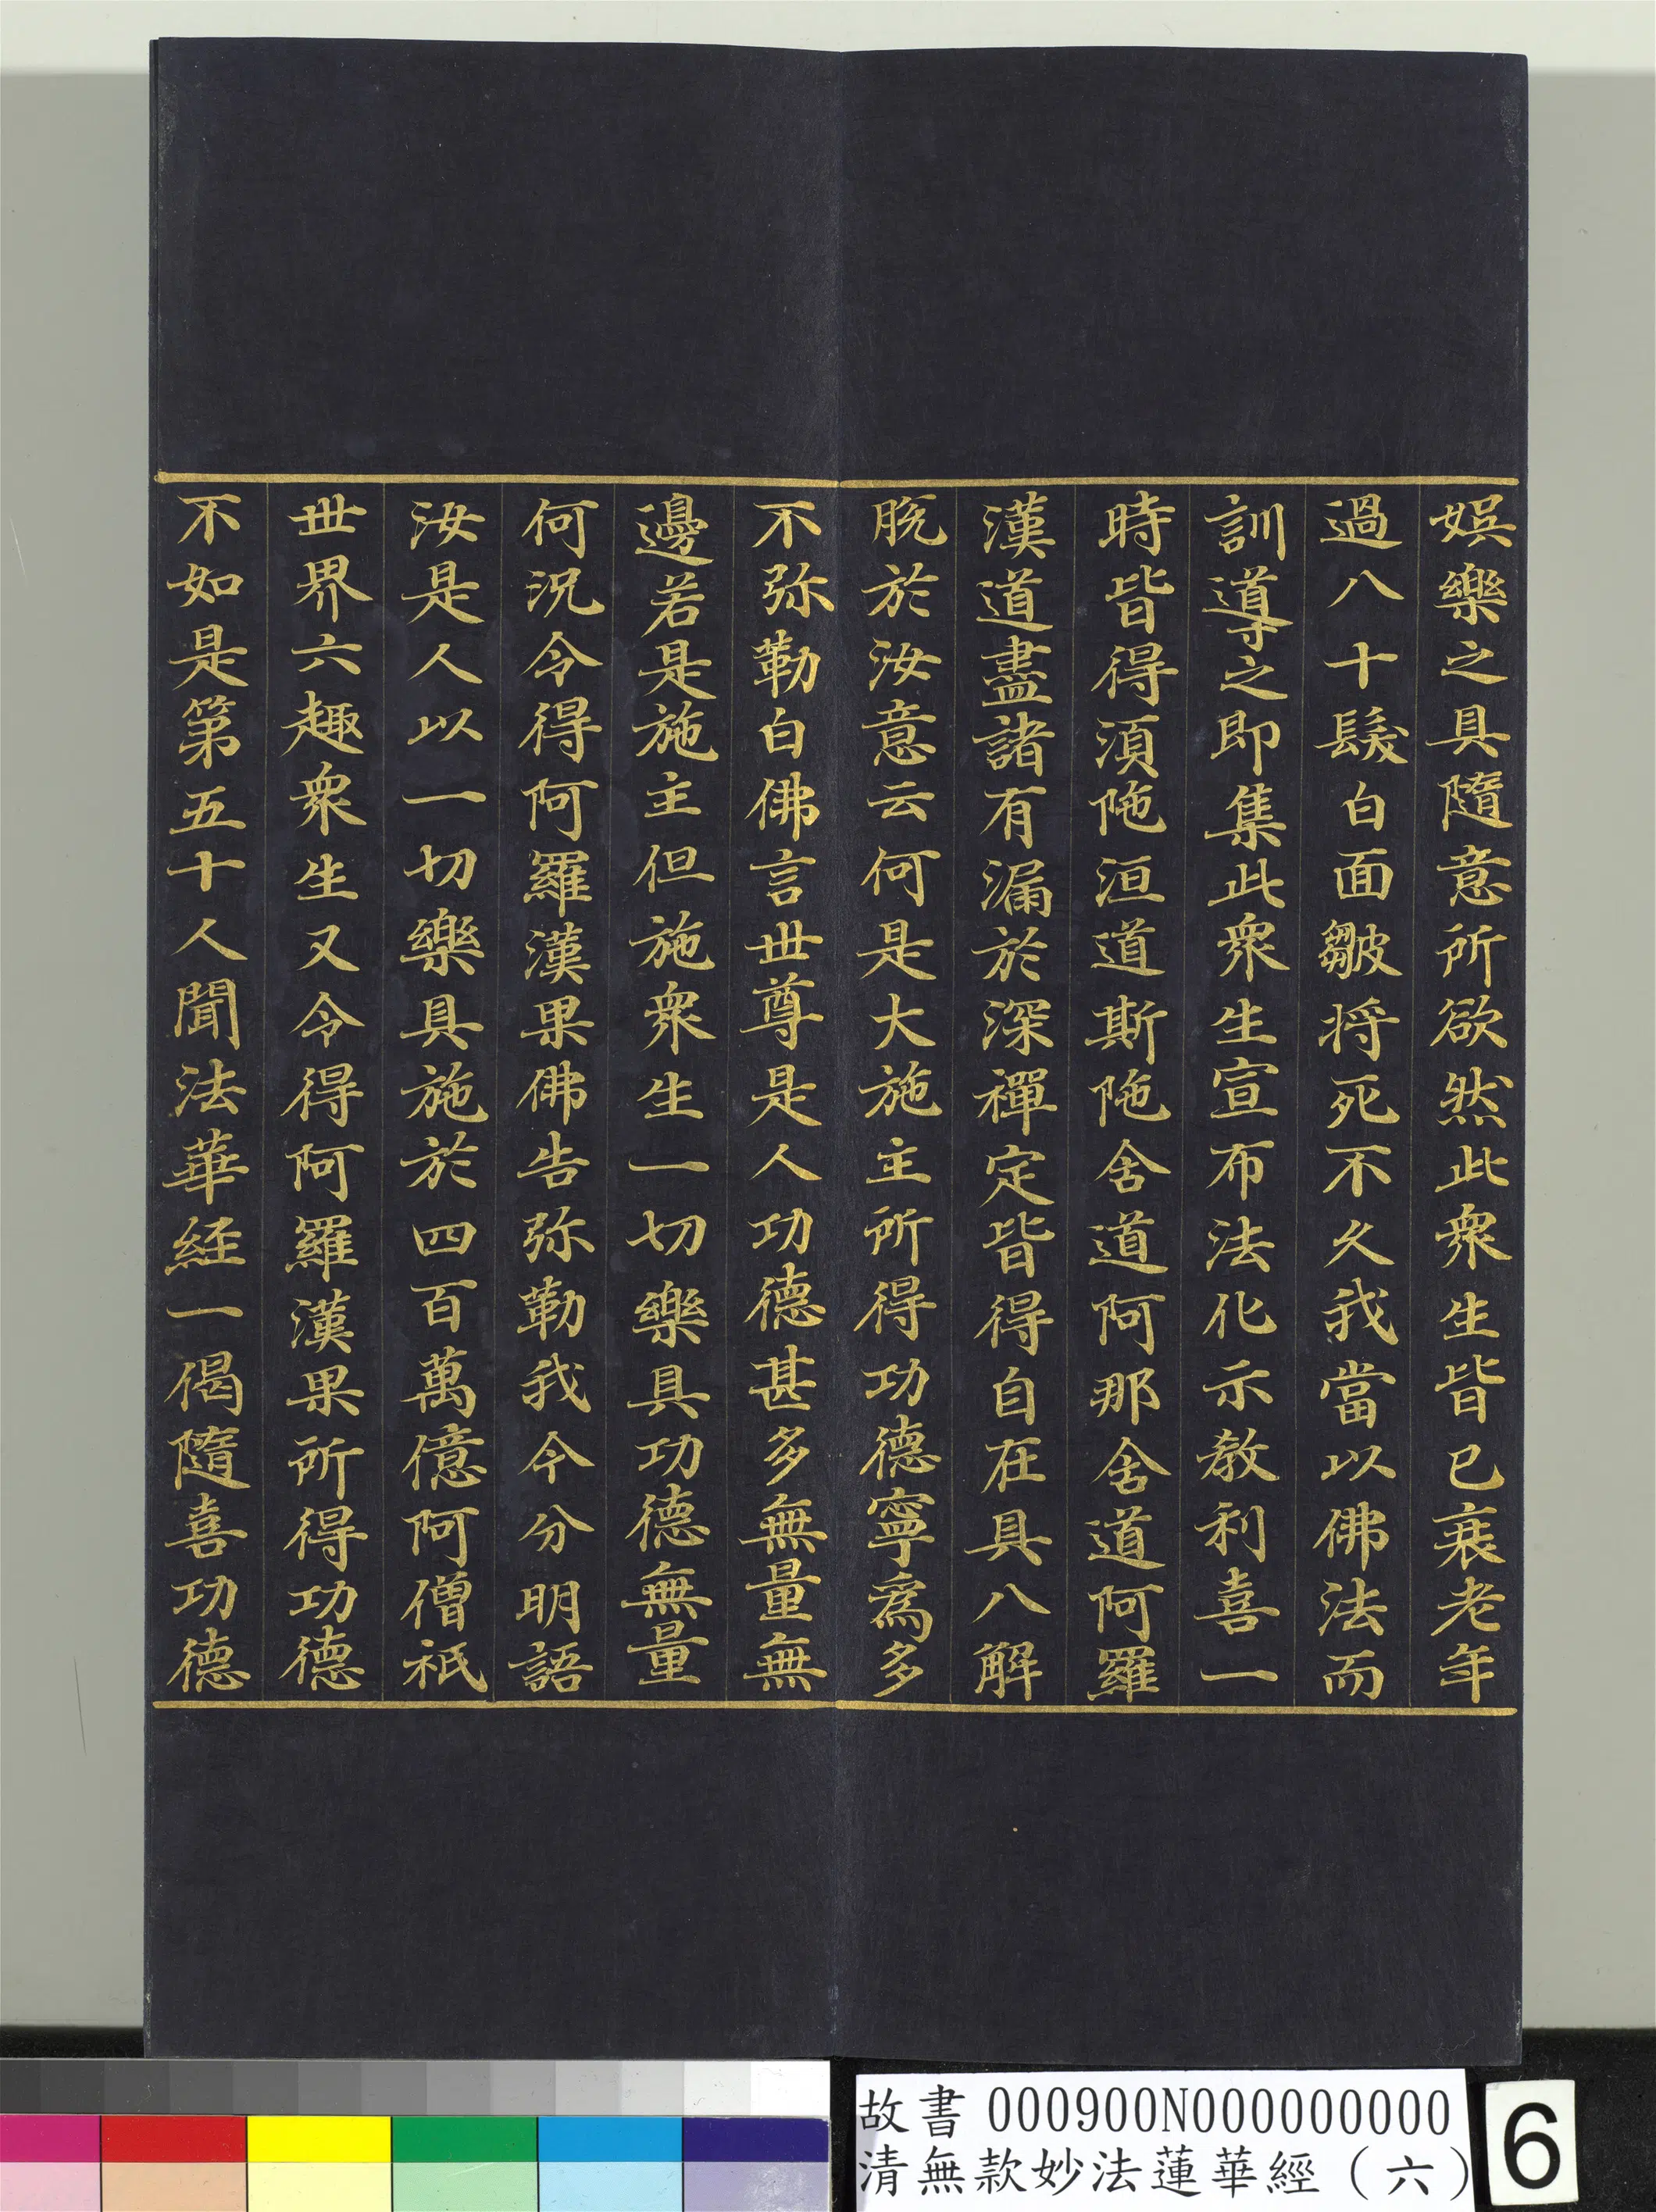 娯樂之具隨意所欲然此衆生皆已衰老年
過八十髮白面皺將死不久我當以佛法而
訓導之即集此衆生宣布法化示教利喜一
時皆得須陁洹道斯陁舍道阿那舍道阿羅
漢道盡諸有漏於深禪定皆得自在具八解
脫於汝意云何是大施主所得功德寧為多
不弥勒白佛言世尊是人功德甚多無量無
邊若是施主但施衆生一切樂具功德無量
何況令得阿羅漢果佛告弥勒我今分明語
汝是人以一切樂具施於四百萬億阿僧祇
世界六趣衆生又令得阿羅漢果所得功德
不如是第五十人聞法華経一偈隨喜功德
故書 000900N000000000
清無款妙法蓮華經(六)
6